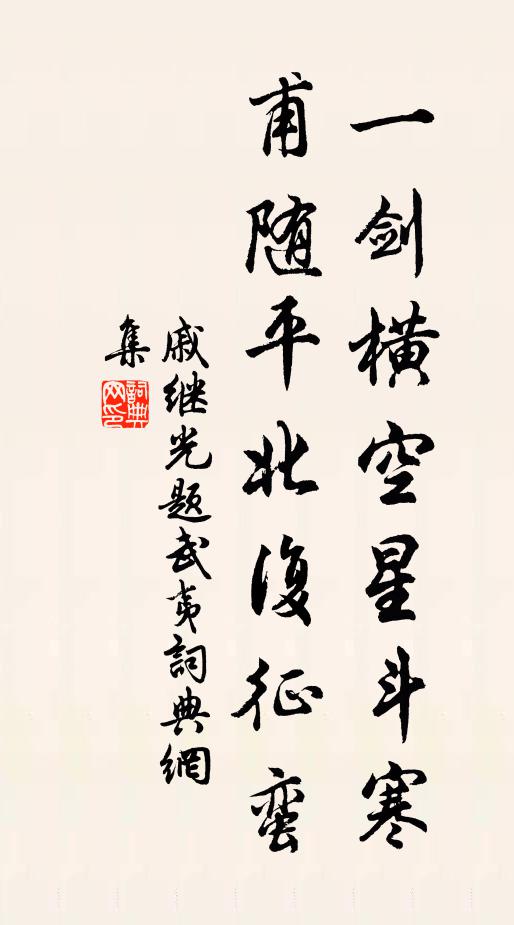 一剑橫空星斗寒
甫随平北復征蛮
戚继光題武夷詞典網
集
詞典网印